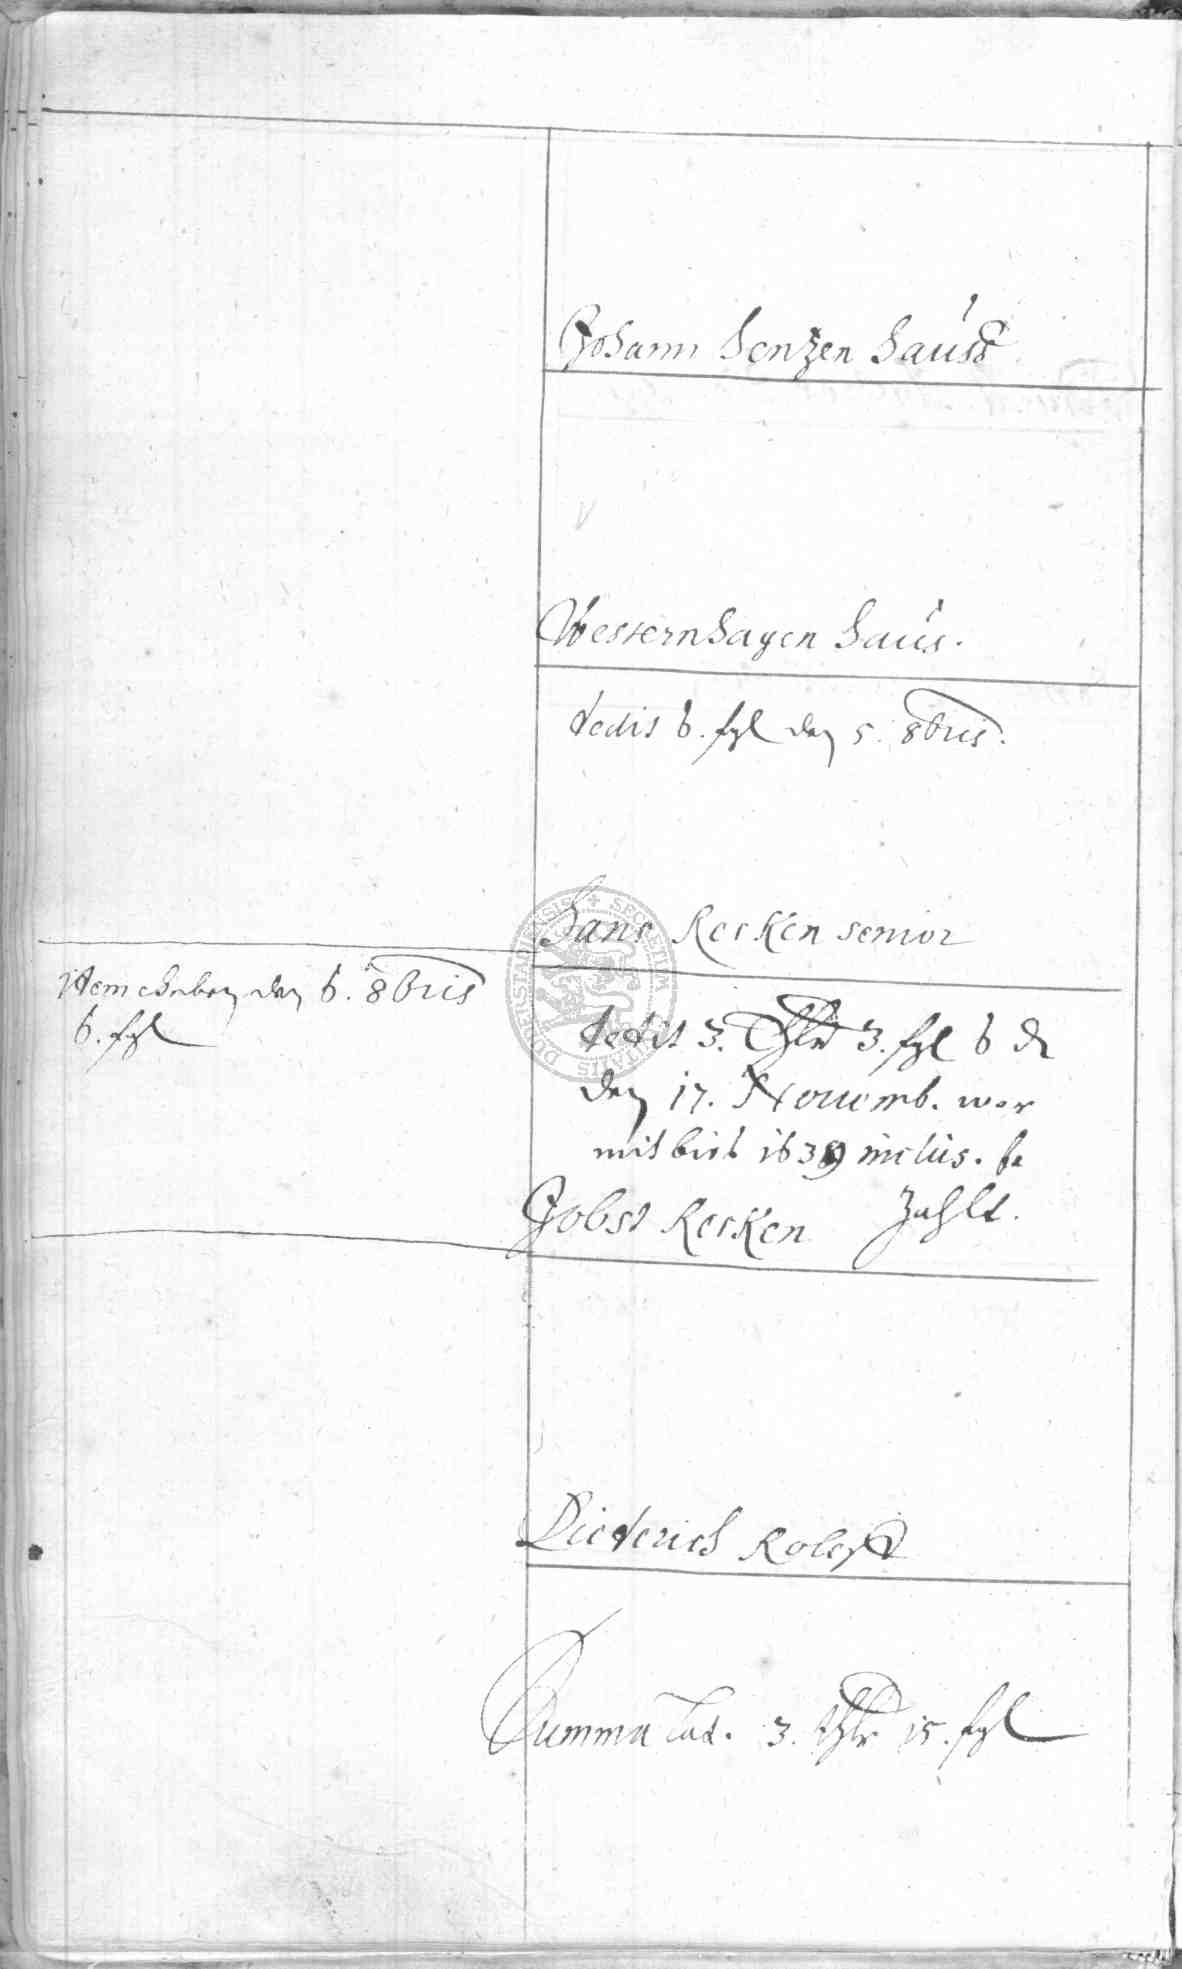 Johann Hentzen Hauß
Westernhagen Hauß.
dedit 6. ßgl den 5. 8bris.
Hans Recken senior
Item den 6. 8bris
6. ßgl
dedit 3. Thlr 3. ßgl 6 d
den 17. Nouemb. wor
mit biß 1639 inclus. be
zahlt.
Jobst Recken
Diederich
Summa Lat. 3. thlr 15. ßgl